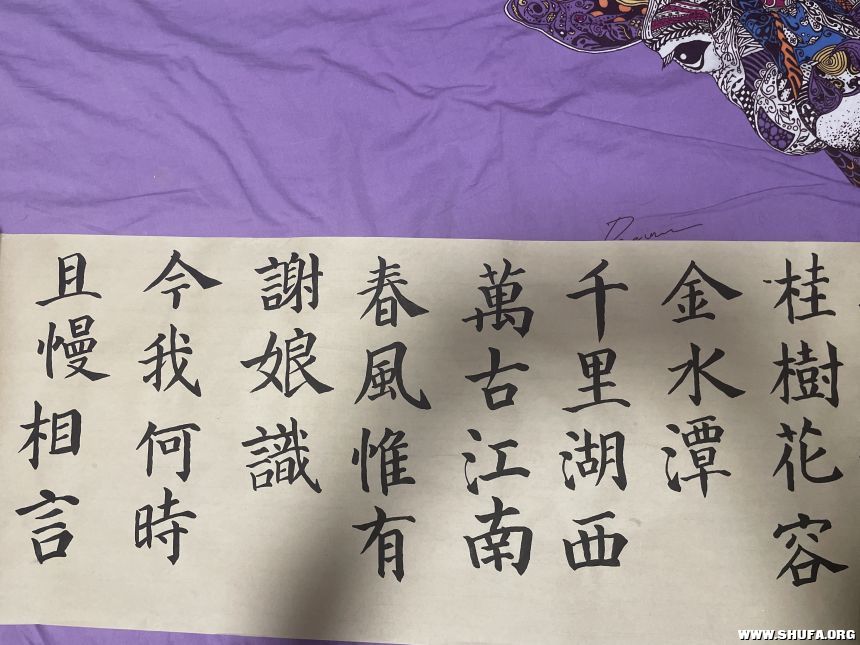 桂樹花容
金水潭
千里湖西
萬古江南
春風惟有
謝娘識
今我何時
且慢相言
WWW.SHUFA.ORG